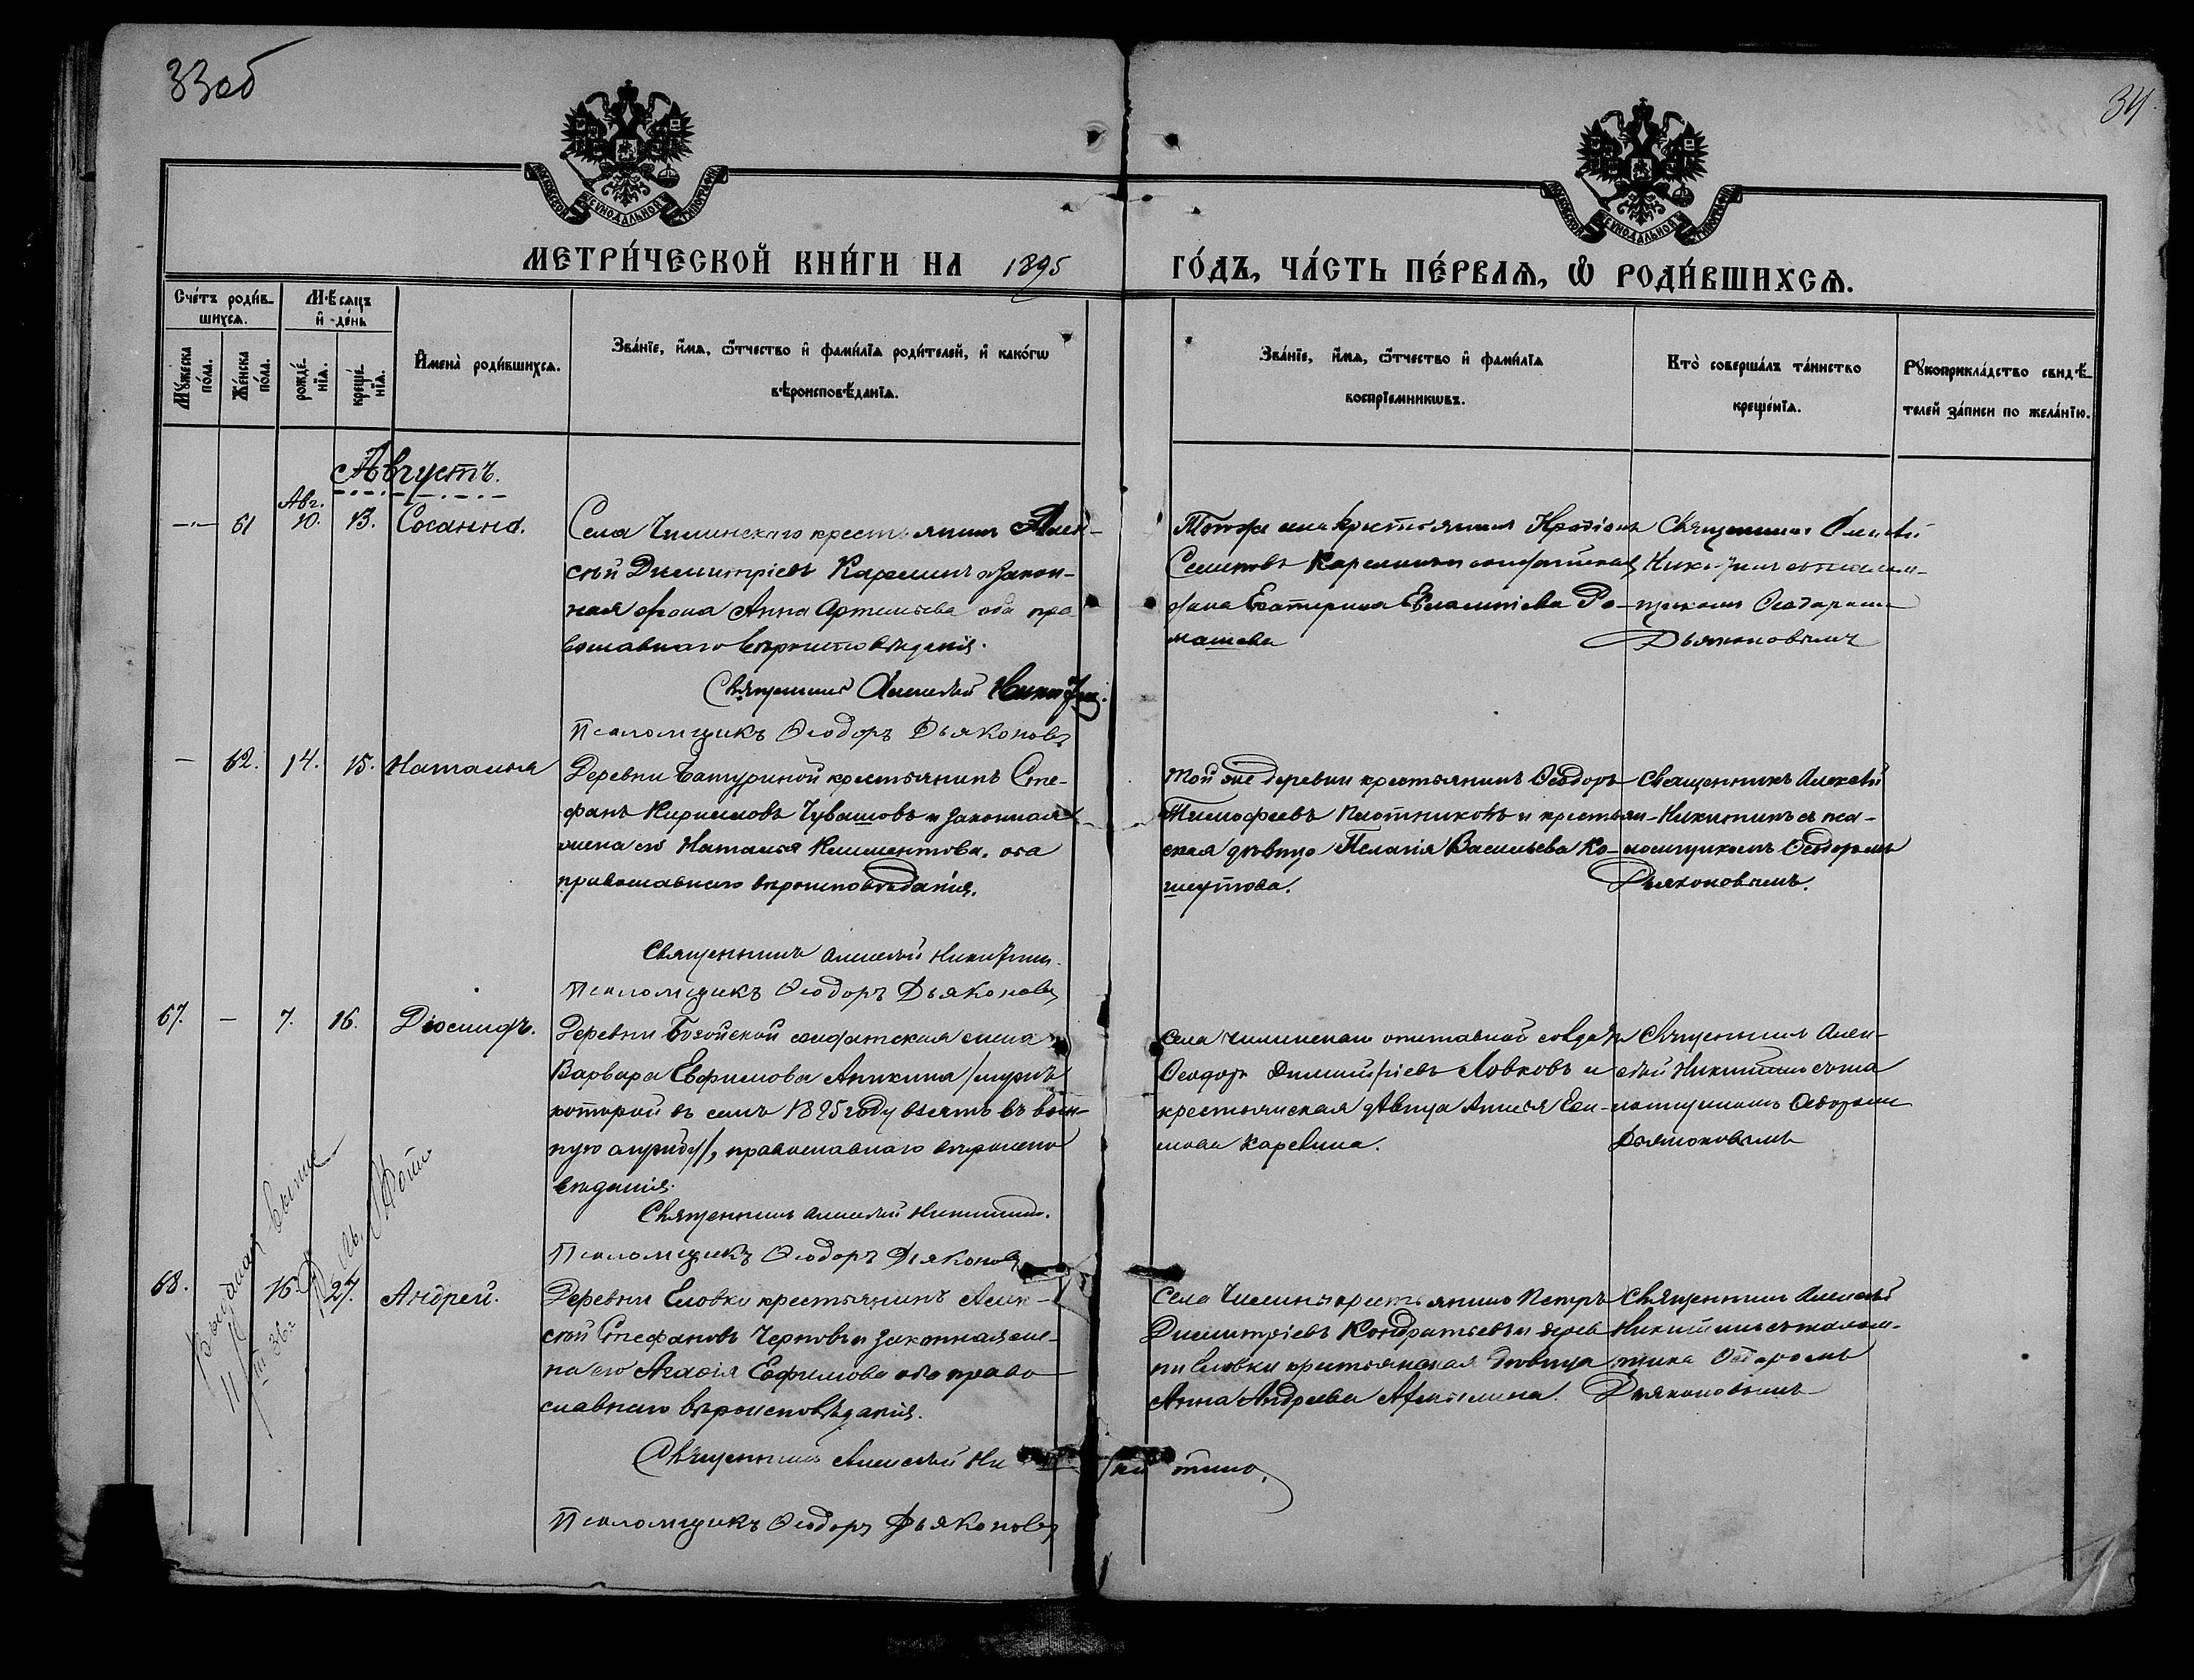 33об
34
МОСКОВСКОЙ СѴНОДАЛЬНОЙ ТИПОГРАФІИ
МОСКОВСКОЙ СѴНОДАЛЬНОЙ ТИПОГРАФІИ
МЕТРИ́ЧЕСКОЙ КНИ́ГИ НА 1895 ГО́ДЪ, ЧА́СТЬ ПЕ́РВАѦ, Ѽ РОДИ́ВШИХСѦ.
Сче́тъ роди́в-
шихся.
Мꙋ́жеска
по́ла.
Же́нска
по́ла.
Мѣ́сяцъ
и҆ де́нь
рожде́-
нїѧ.
креще́-
нїѧ.
И҆мена̀ роди́вшихсѧ.
Зва́нїе, и҆́мѧ, ѻ҆́тчество и҆ фами́лїѧ роди́телей, и҆ како́гѡ
вѣроисповѣ́данїѧ.
Зва́нїе, и҆́мѧ, ѻ҆́тчество и҆ фами́лїѧ
воспрїе́мникѡвъ.
Кто̀ соверша́лъ та́инство
креще́нїѧ.
Рꙋкоприкла́дство свидѣ́-
телей за́писи по жела́нїю.
Августъ.
— 61 Авг. 10. 13. Сосанна.
Села Чилинскаго крестьянинъ Алек-
сѣй Димитріевъ Карелинъ и закон-
ная жена Анна Артемьева оба пра
вославнаго вѣроисповѣданія.
Священникъ Алексѣй Никитин.
Псаломщикъ Ѳеодоръ Дьяконовъ
Тогоже села крестьянинъ
Семеновъ Карелинъ и солдатская
жена Екатерина Ро-
машева
Священникъ Алексѣй
Никитинъ съ псалом-
щикомъ Ѳеодоромъ
Дьяконовымъ
— 62. 14. 15. Наталья
Деревни Батуриной крестьянинъ Сте-
фанъ Кирилловъ Чувашовъ и законная
жена его Наталья Климентова. оба
православнаго вѣроисповѣданія.
Священникъ Алексѣй Никитин.
Псаломщикъ Ѳеодоръ Дьяконовъ
Той же деревни крестьянинъ Ѳеодоръ
Тимофеевъ Плотниковъ и крестьян-
ская дѣвица Пелагія Васильева Ко-
шутова.
Священникъ Алексѣй
Никитинъ съ пса-
ломщикомъ Ѳеодоромъ
Дьяконовымъ.
67. — 7. 16. Діосиф.
Деревни Базойской солдатская жена
Варвара Евфимова Аникина /мужъ
которой въ семъ 1895 году взятъ въ воен-
ную службу/, православнаго вѣроиспо
вѣданія.
Священникъ Алексѣй Никитин.
Псаломщикъ Ѳеодоръ Дьяконовъ
Села Чилинскаго отставной солдатъ
Ѳеодоръ Димитріевъ Ловковъ и
крестьянская дѣвица
Карелина.
Священникъ Алек-
сѣй Никитинъ съ пса
ломщикомъ Ѳеодоромъ
Дьяконовымъ
68. 16. 27. Андрей.
Деревни Еловки крестьянинъ Алек-
сѣй Стефановъ Черновъ и законная же-
на его Агафія Евфимова оба право
славнаго вѣроисповѣданія.
Священникъ Алексѣй Ни китинъ.
Псаломщикъ Ѳеодоръ Дьяконовъ
Села Чилина крестьянинъ Петръ
Димитріевъ Кондратьевъ и дерев
ни Еловки крестьянская дѣвица
Анна Андреева
Священникъ Алексѣй
Никитинъ съ псалом-
щика Ѳеодоромъ
Дьяконовымъ
Выдана выпись